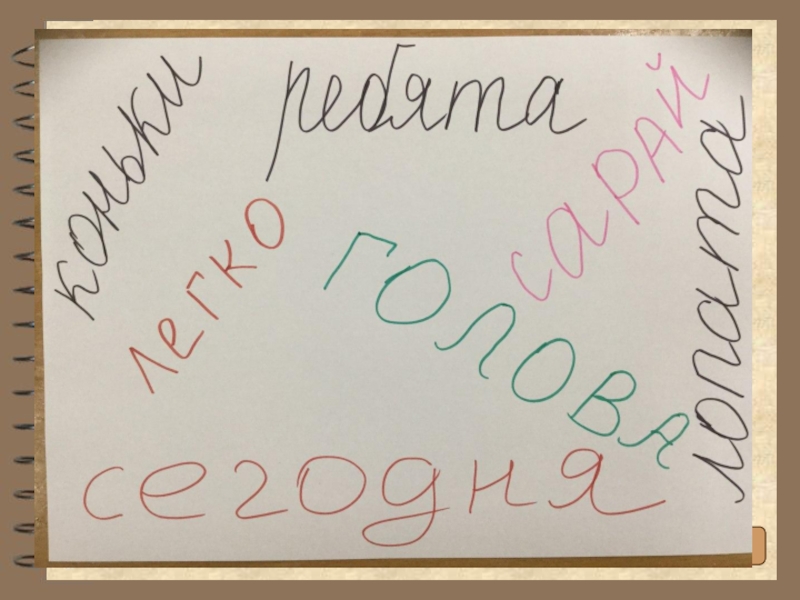 коньки
ребята
сарай
лопата
легко
голова
сегодня